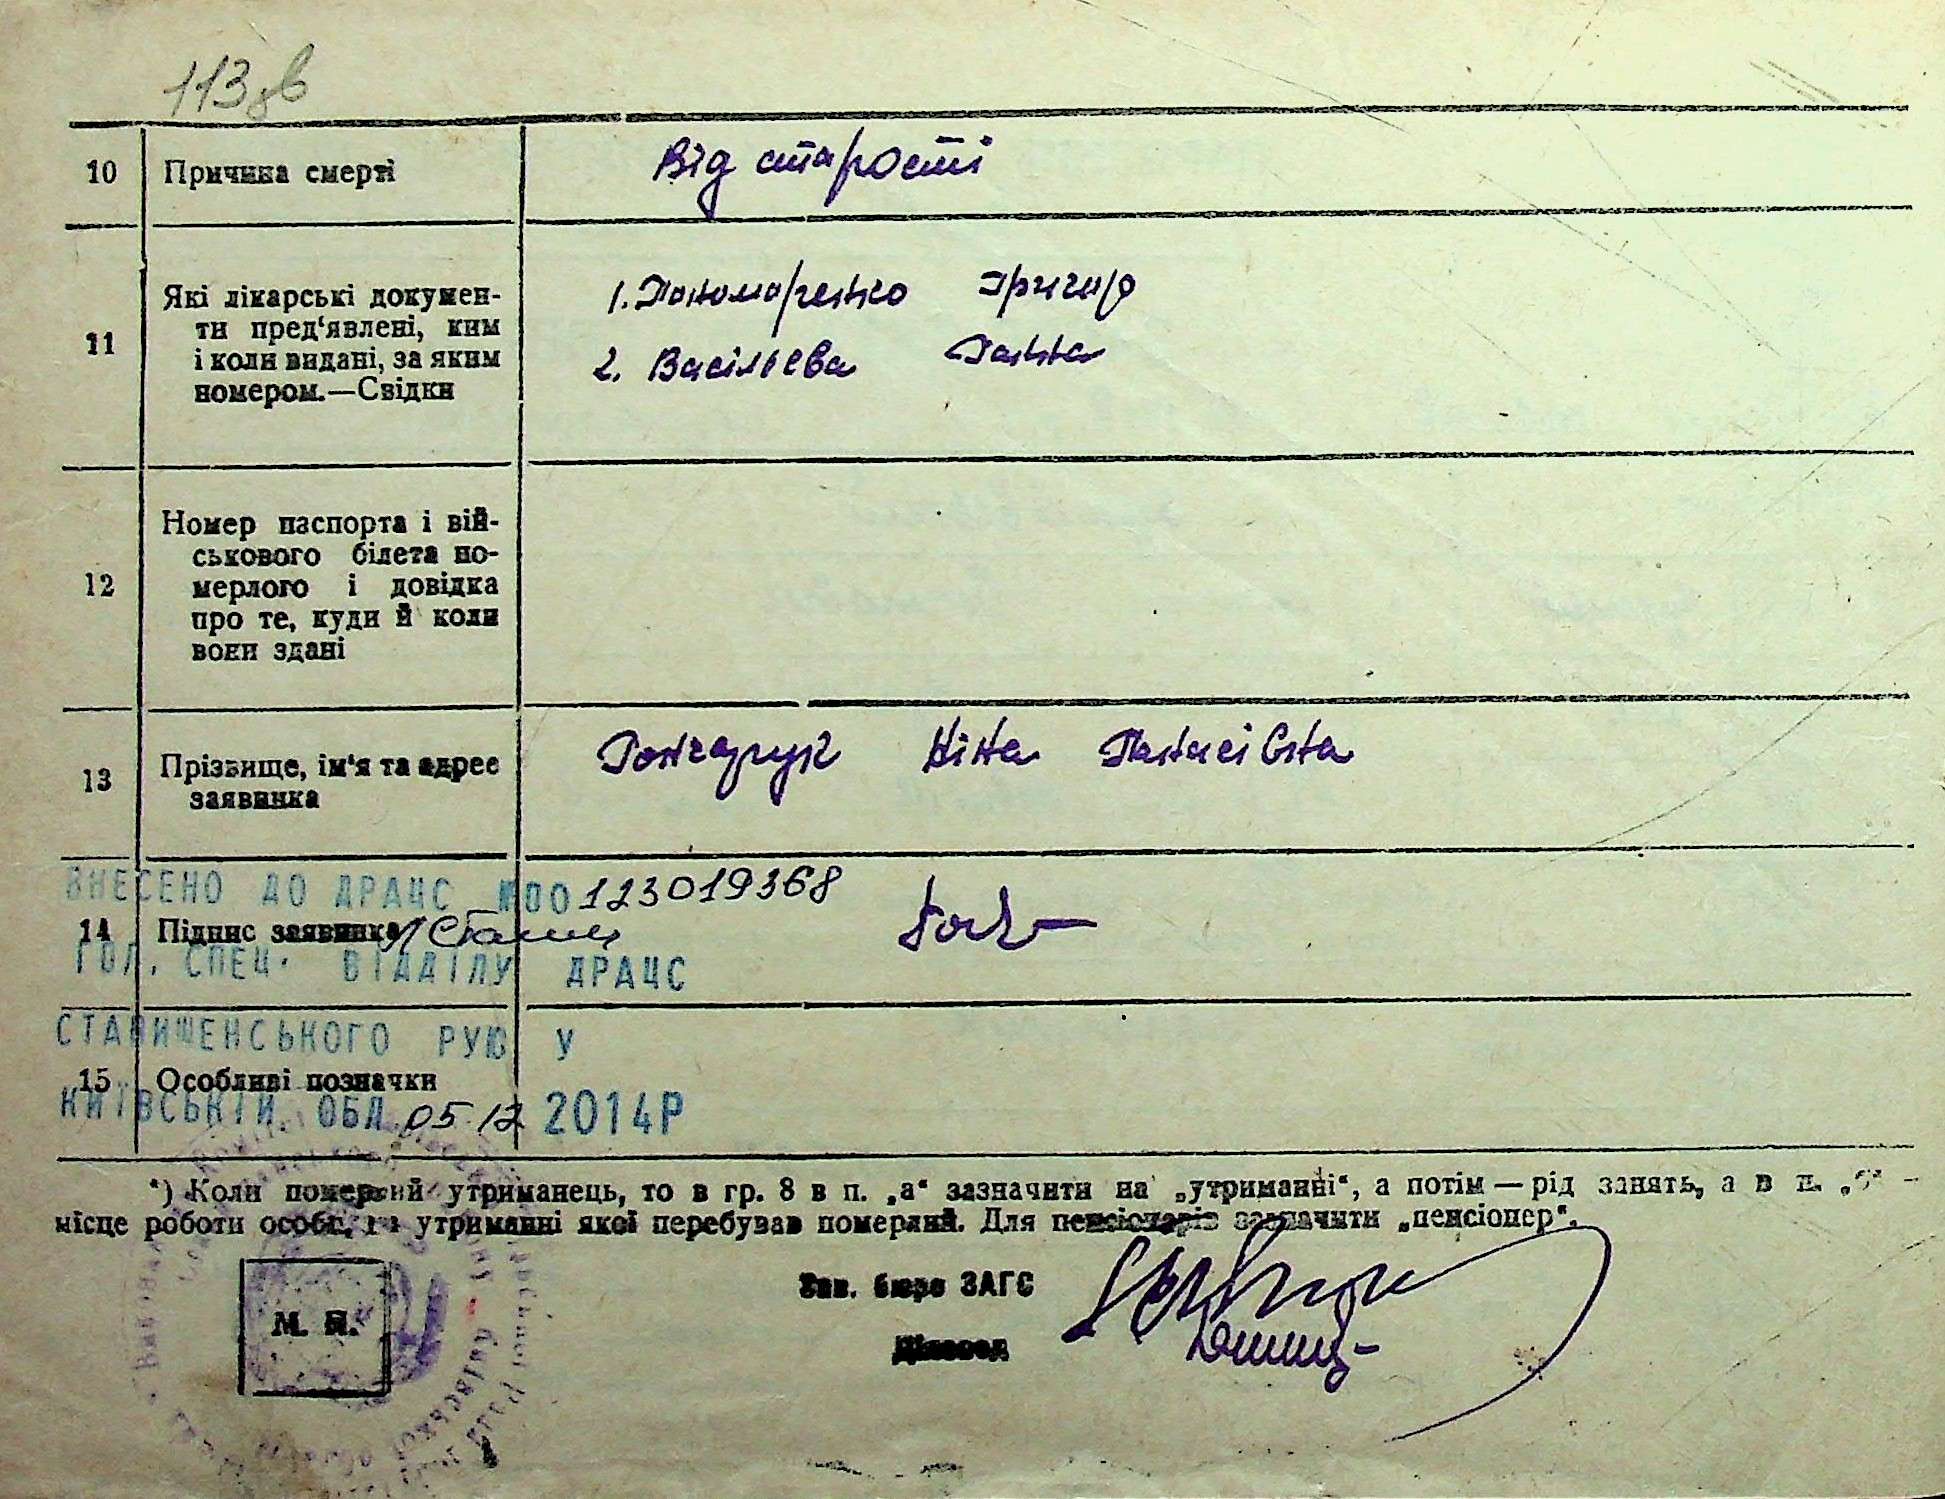 113 зв
10 Причина смерті Від старості
11 Які лікарські докумен-
ти пред‘явлені, ким
і коли видані, за яким
номером.—Свідки
1. Пономаренко Григор
2. Васільєва Ганна
12 Номер паспорта і вій-
ськового білета по-
мерлого і довідка
про те, куди й коли
вони здані
13 Прізвище, ім‘я та адрес
заявника
Гончарук Ніна Панасівна
ВНЕСЕНО ДО ДРАЦС №00123019368
14 Підпис заявника
ГОЛ. СПЕЦ. ВІДДІЛУ ДРАЦС
СТАВИЩЕНСЬКОГО РУЮ У
15 Особливі позначки
КИЇВСЬКІЙ ОБЛ 05.12 2014Р
*) Коли померлий утриманець, то в гр. 8 в п. „а“ зазначити на „утриманні“, а потім — рід занять, а в п. „б“ –
місце роботи особи, на утриманні якої перебував померлий. Для пенсіонерів зазначити „пенсіонер“.
Зав. бюро ЗАГС
М. П.
Діловод